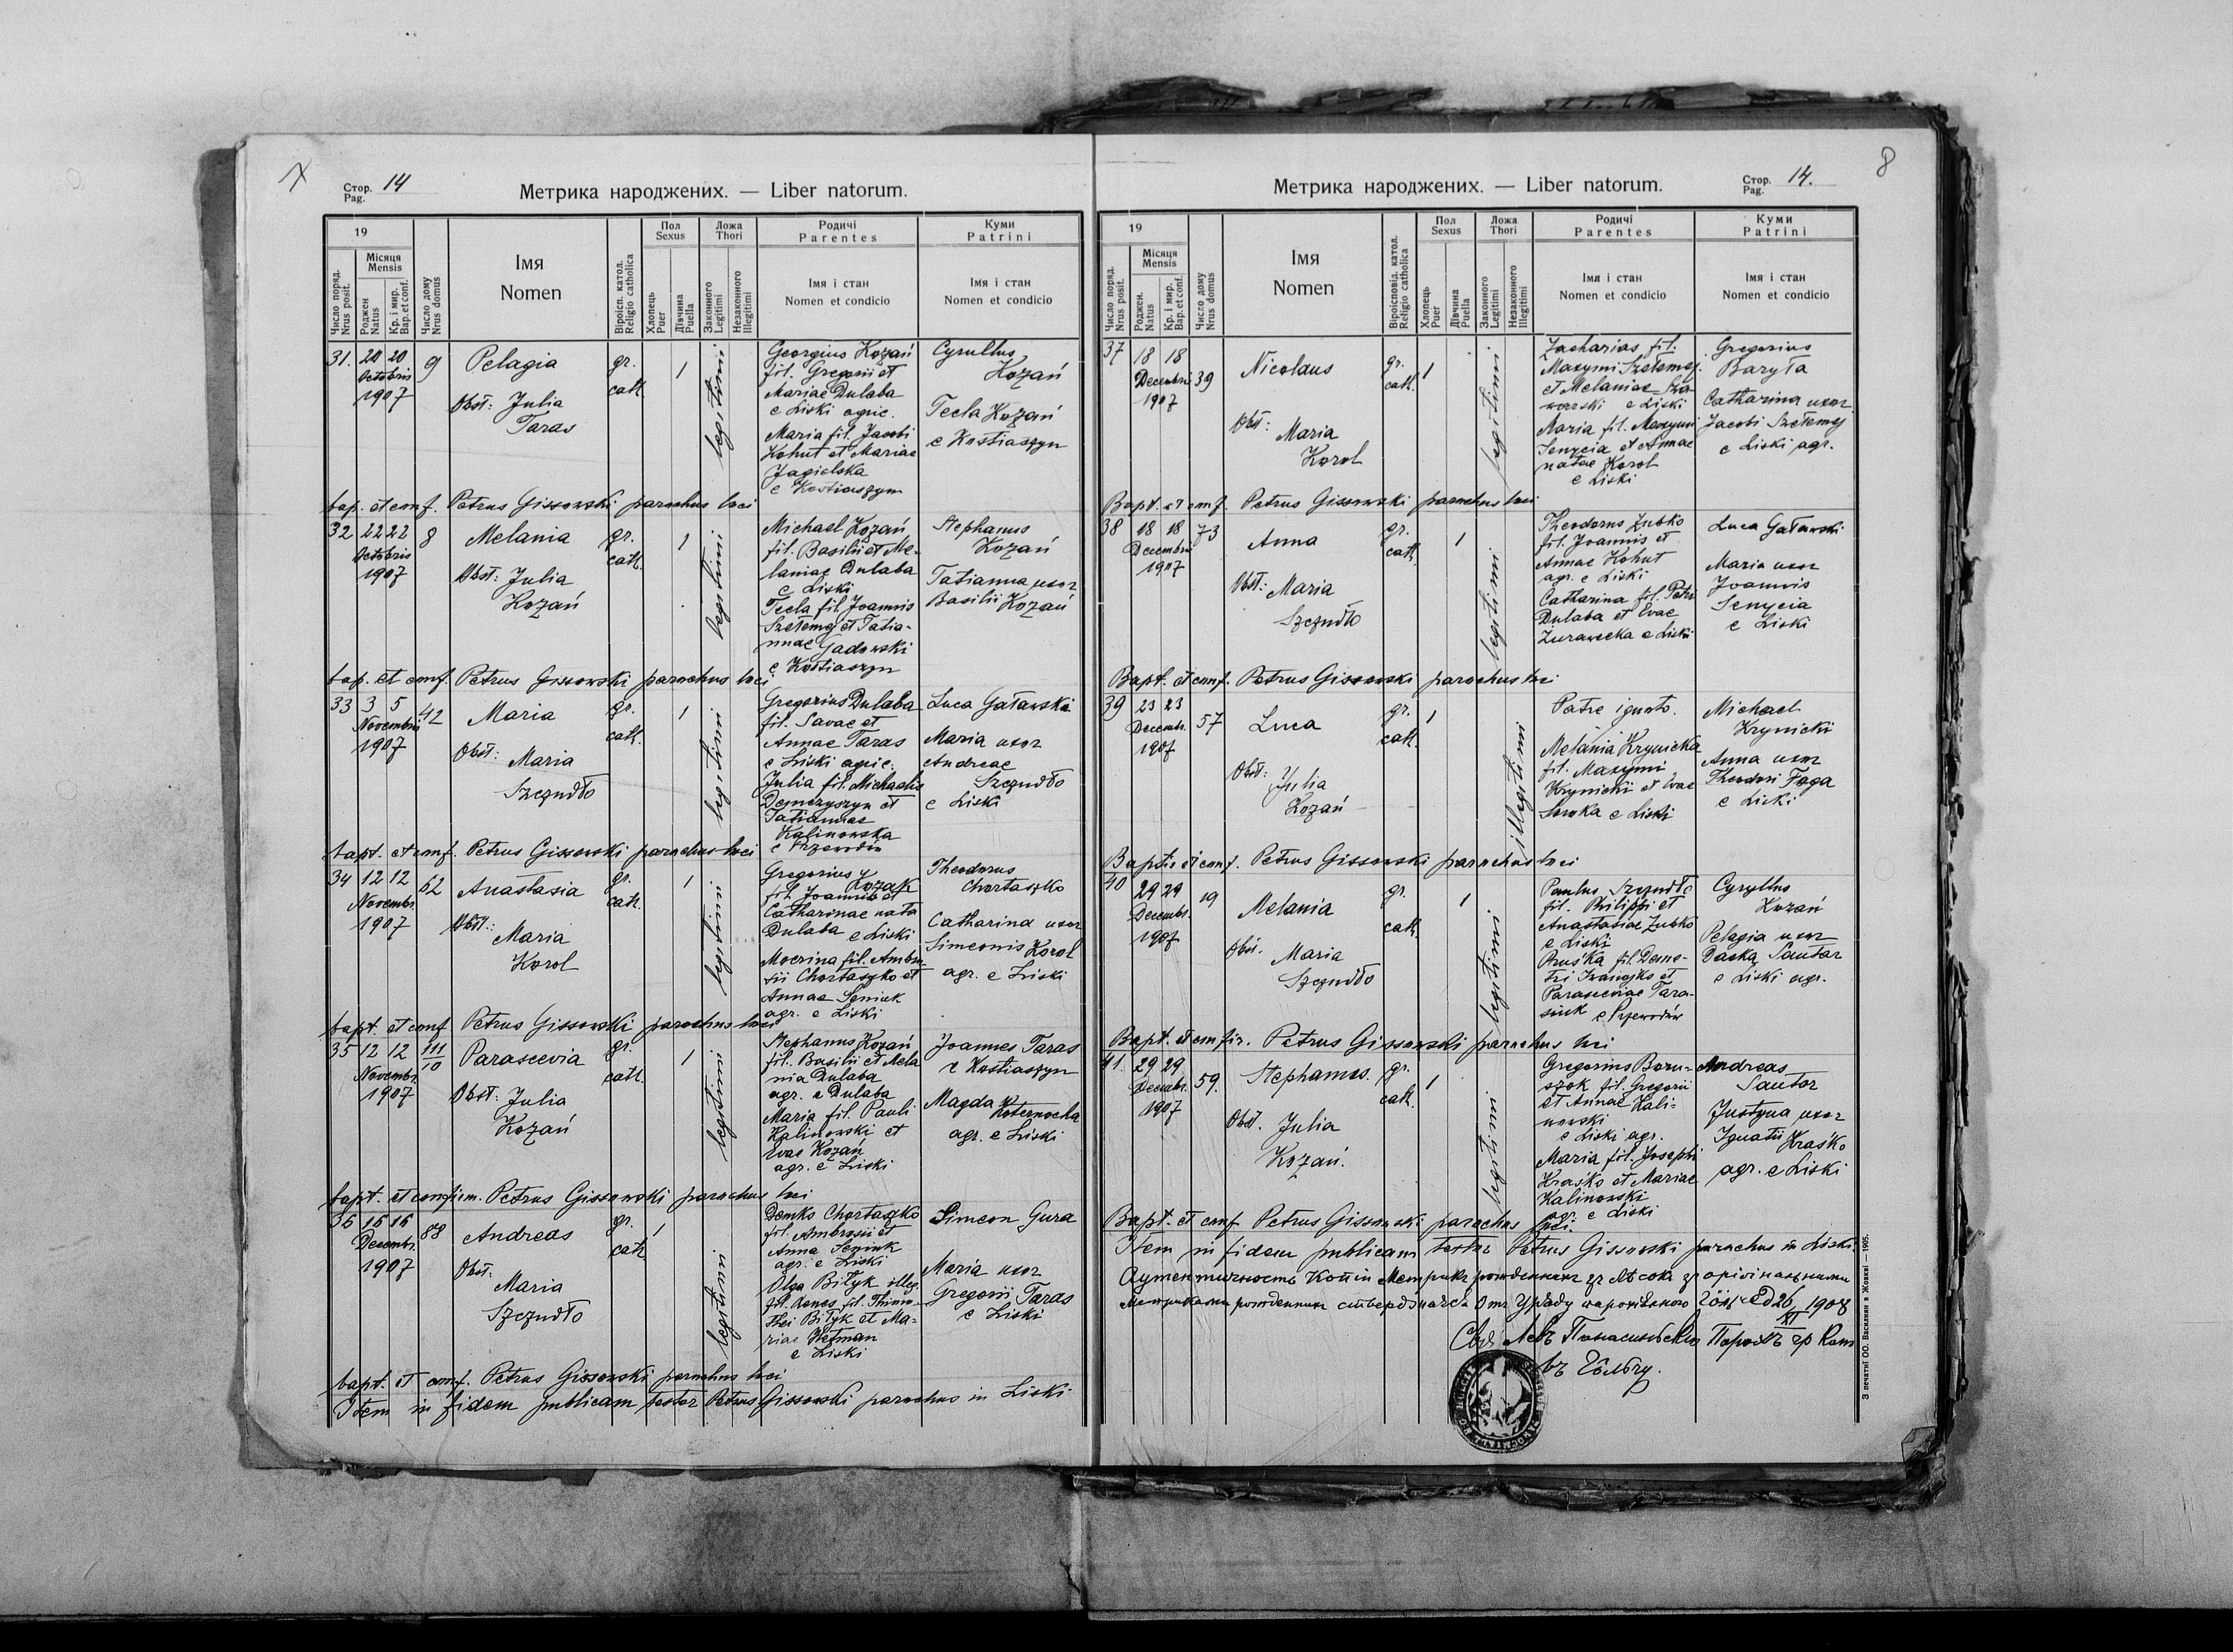 Стор. Pag. 14
Метрика народжених. — Liber natorum.
19
Число поряд. Nrus posit.
Місяця Mensis
Роджен Natus
Кр. і мир. Bap. et conf.
Число дому Nrus domus
Імя Nomen
Віроісп. катол. Religio catholica
Пол Sexus
Хлопець Puer
Дівчина Puella
Ложа Thori
Законного Legitimi
Незаконного Illegitimi
Родичі Parentes
Імя і стан Nomen et condicio
Куми Patrini
Імя і стан Nomen et condicio
31. 20 20 9 Pelagia gr. 1 legitimi
Octobris cath.
1907
Obst: Julia
Taras
Georgius Kozań
fil. Gregorii et
Mariae Dulaba
e Liski agric.
Maria fil. Jacobi
Kohut et Mariae
Jagielska
e Kostiaszyn
Cyrullus
Kozań
Tecla Kozań
e Kostiaszyn
bap. et conf. Petrus Gissowski parochus loci
32 22 22 8 Melania gr. 1 legitimi
Octobris cath.
1907
Obst: Julia
Kozań
Michael Kozań
fil. Basilii et Me-
laniae Dulaba
e Liski
Tecla fil. Joannis
Szełemej et Tatia-
nnae Gadowski
e Kostiaszyn
Stephanus
Kozań
Tatianna uxor
Basilii Kozań
bap. et conf. Petrus Gissowski parochus loci
33 3 5 42 Maria gr. 1 legitimi
Novembris cath.
1907
Obst: Maria
Szczudło
Gregorius Dulaba
fil. Savae et
Annae Taras
e Liski agric.
Julia fil. Michaelis
Demczyszyn et
Tatiannae
Kalinowska
e Przewodów
Luca Gaławski
Maria uxor
Andreae
Szczudło
e Liski
bapt. et conf. Petrus Gissowski parochus loci
34 12 12 62 Anastasia gr. 1 legitimi
Novembr. cath.
1907
Obst: Maria
Korol
Gregorius Kozak
fil. Joannis et
Catharinae nata
Dulaba e Liski
Mocrina fil. Ambro-
sii Chartaszko et
Annae Seniuk
agr. e Liski
Theodorus
Chartaszko
Catharina uxor
Simeonis Korol
agr. e Liski
bapt. et conf Petrus Gissowski parochus loci
35 12 12 111/10 Parascevia gr. 1 legitimi
Novembr. cath.
1907
Obst: Julia
Kozań
Stephanus Kozań
fil. Basilii et Mela
nia Dulaba
agr. e Dulaba
Maria fil. Pauli
Kalinowski et
Evae Kozań
agr. e Liski
Joannes Taras
e Kostiaszyn
Magda
agr. e Liski
bapt. et confirm. Petrus Gissowski parochus loci
36 16 16 88 Andreas gr. 1 legitimi
Decembr. cath
1907
Obst.
Maria
Szczudło
Demko Chartaszko
fil. Ambrosii et
Anna Seniuk
agr. e Liski
Olga Biłyk illeg.
fil. Agnes fil. Thimo-
thei Biłyk et Ma-
riae Hetman
e Liski
Simeon Gura
Maria uxor
Gregorii Taras
e Liski
bapt. et conf. Petrus Gissowski parochus loci
Item in fidem publicam testor Petrus Gissowski parochus in Liski
8
Метрика народжених. — Liber natorum.
Стор. Pag. 14.
19
Число поряд. Nrus posit.
Місяця Mensis
Роджен. Natus
Кр. і мир. Bap. et conf.
Число дому Nrus domus
Імя Nomen
Віроісповід. катол. Religio catholica
Пол Sexus
Хлопець Puer
Дівчина Puella
Ложа Thori
Законного Legitimi
Незаконного Illegitimi
Родичі Parentes
Імя і стан Nomen et condicio
Куми Patrini
Імя і стан Nomen et condicio
37 18 18 39 Nicolaus gr. 1 legitimi
Decembris cath.
1907
Obst: Maria
Korol
Zacharias fil.
Maxymi Szełemej
et Melaniae
e Liski
Maria fil. Maxymi
Senycia et Annae
natae Korol
e Liski
Gregorius
Baryła
Catharina uxor
Jacobi Szełemej
e Liski agr.
Bapt. et conf. Petrus Gissowski parochus loci
38 18 18 73 Anna gr. 1 legitimi
Decembris cath.
1907
Obst: Maria
Szczudło
Theodorus Zubko
fil. Joannis et
Annae Kohut
agr. e Liski
Catharina fil. Petri
Dulaba et Evae
Żurawecka e Liski
Luca Gaławski
Maria uxor
Joannis
Senycia
e Liski
Bapt. et conf. Petrus Gissowski parochus loci
39 23 23 57 Luca gr. 1 illegitimi
Decembr. cath.
1907
Obst: Julia
Kozań
Patre ignoto.
Melania Krynicka
fil. Maxymi
Krynicki et Evae
Sroka e Liski
Michael
Krynicki
Anna uxor
Theodori Faga
e Liski
Baptis et conf. Petrus Gissowski parochus loci
40 29 29 19 Melania gr. 1 legitimi
Decembr. cath.
1907
Obst. Maria
Szczudło
Paulus Szczudło
fil. Philippi et
Anastasiae Zubko
e Liski
Pruśka fil. Deme-
tri Iwanejko et
Parasceviae Tara-
siuk e Przewodów
Cyryllus
Kozań
Pelagia uxor
Daska Sautar
e Liski agr.
Bapt. et confir. Petrus Gissowski parochus loci
41. 29 29 59. Stephanus. gr. 1 legitimi
Decembr. cath.
1907
Obst. Julia
Kozań.
Gregorius Boru-
szok fil. Gregorii
et Annae Kali-
nowski
e Liski agr.
Maria fil. Josephi
Kraśko et Mariae
Kalinowski
agr. e Liski
Andreas
Sautar
Justyna uxor
Ignatii Kraśko
agr. e Liski
Bapt. et conf Petrus Gissowski parochus loci.
Item in fidem publicam testor Petrus Gissowski parochus in Liski.
Аутентичность Копіи Метрикъ рожденныхъ оригінальными
Метриками рожденныхъ 26/XI 1908
Левъ Парохъ гр Кат
въ
З печатні ОО. Василиян в Жовкві — 1905.